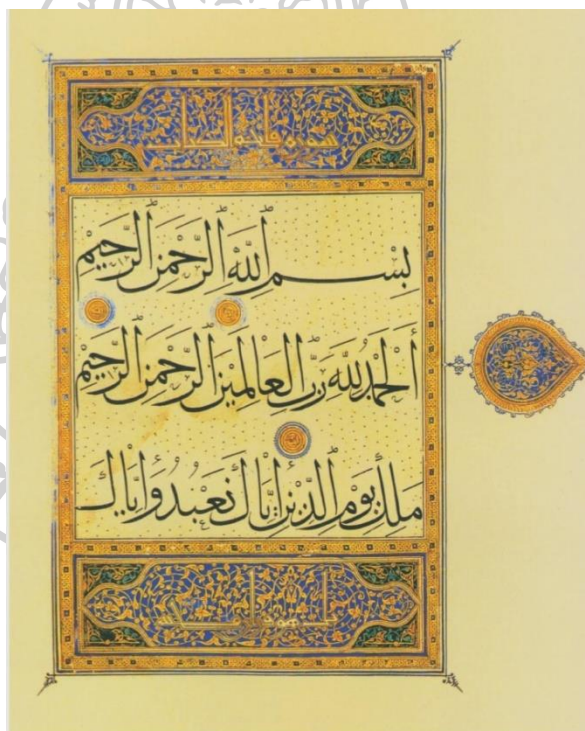 سورة فاتحة الكتاب
بِسْمِ اللَّهِ الرَّحْمَنِ الرَّحِيمِ
أَلْحَمْدُ لِلَّهِ رَبِّ الْعَالَمِينَ الرَّحْمَنِ الرَّحِيمِ
مَلِكِ يَوْمِ الدِّينِ إِيَّاكَ نَعْبُدُ وَإِيَّاكَ